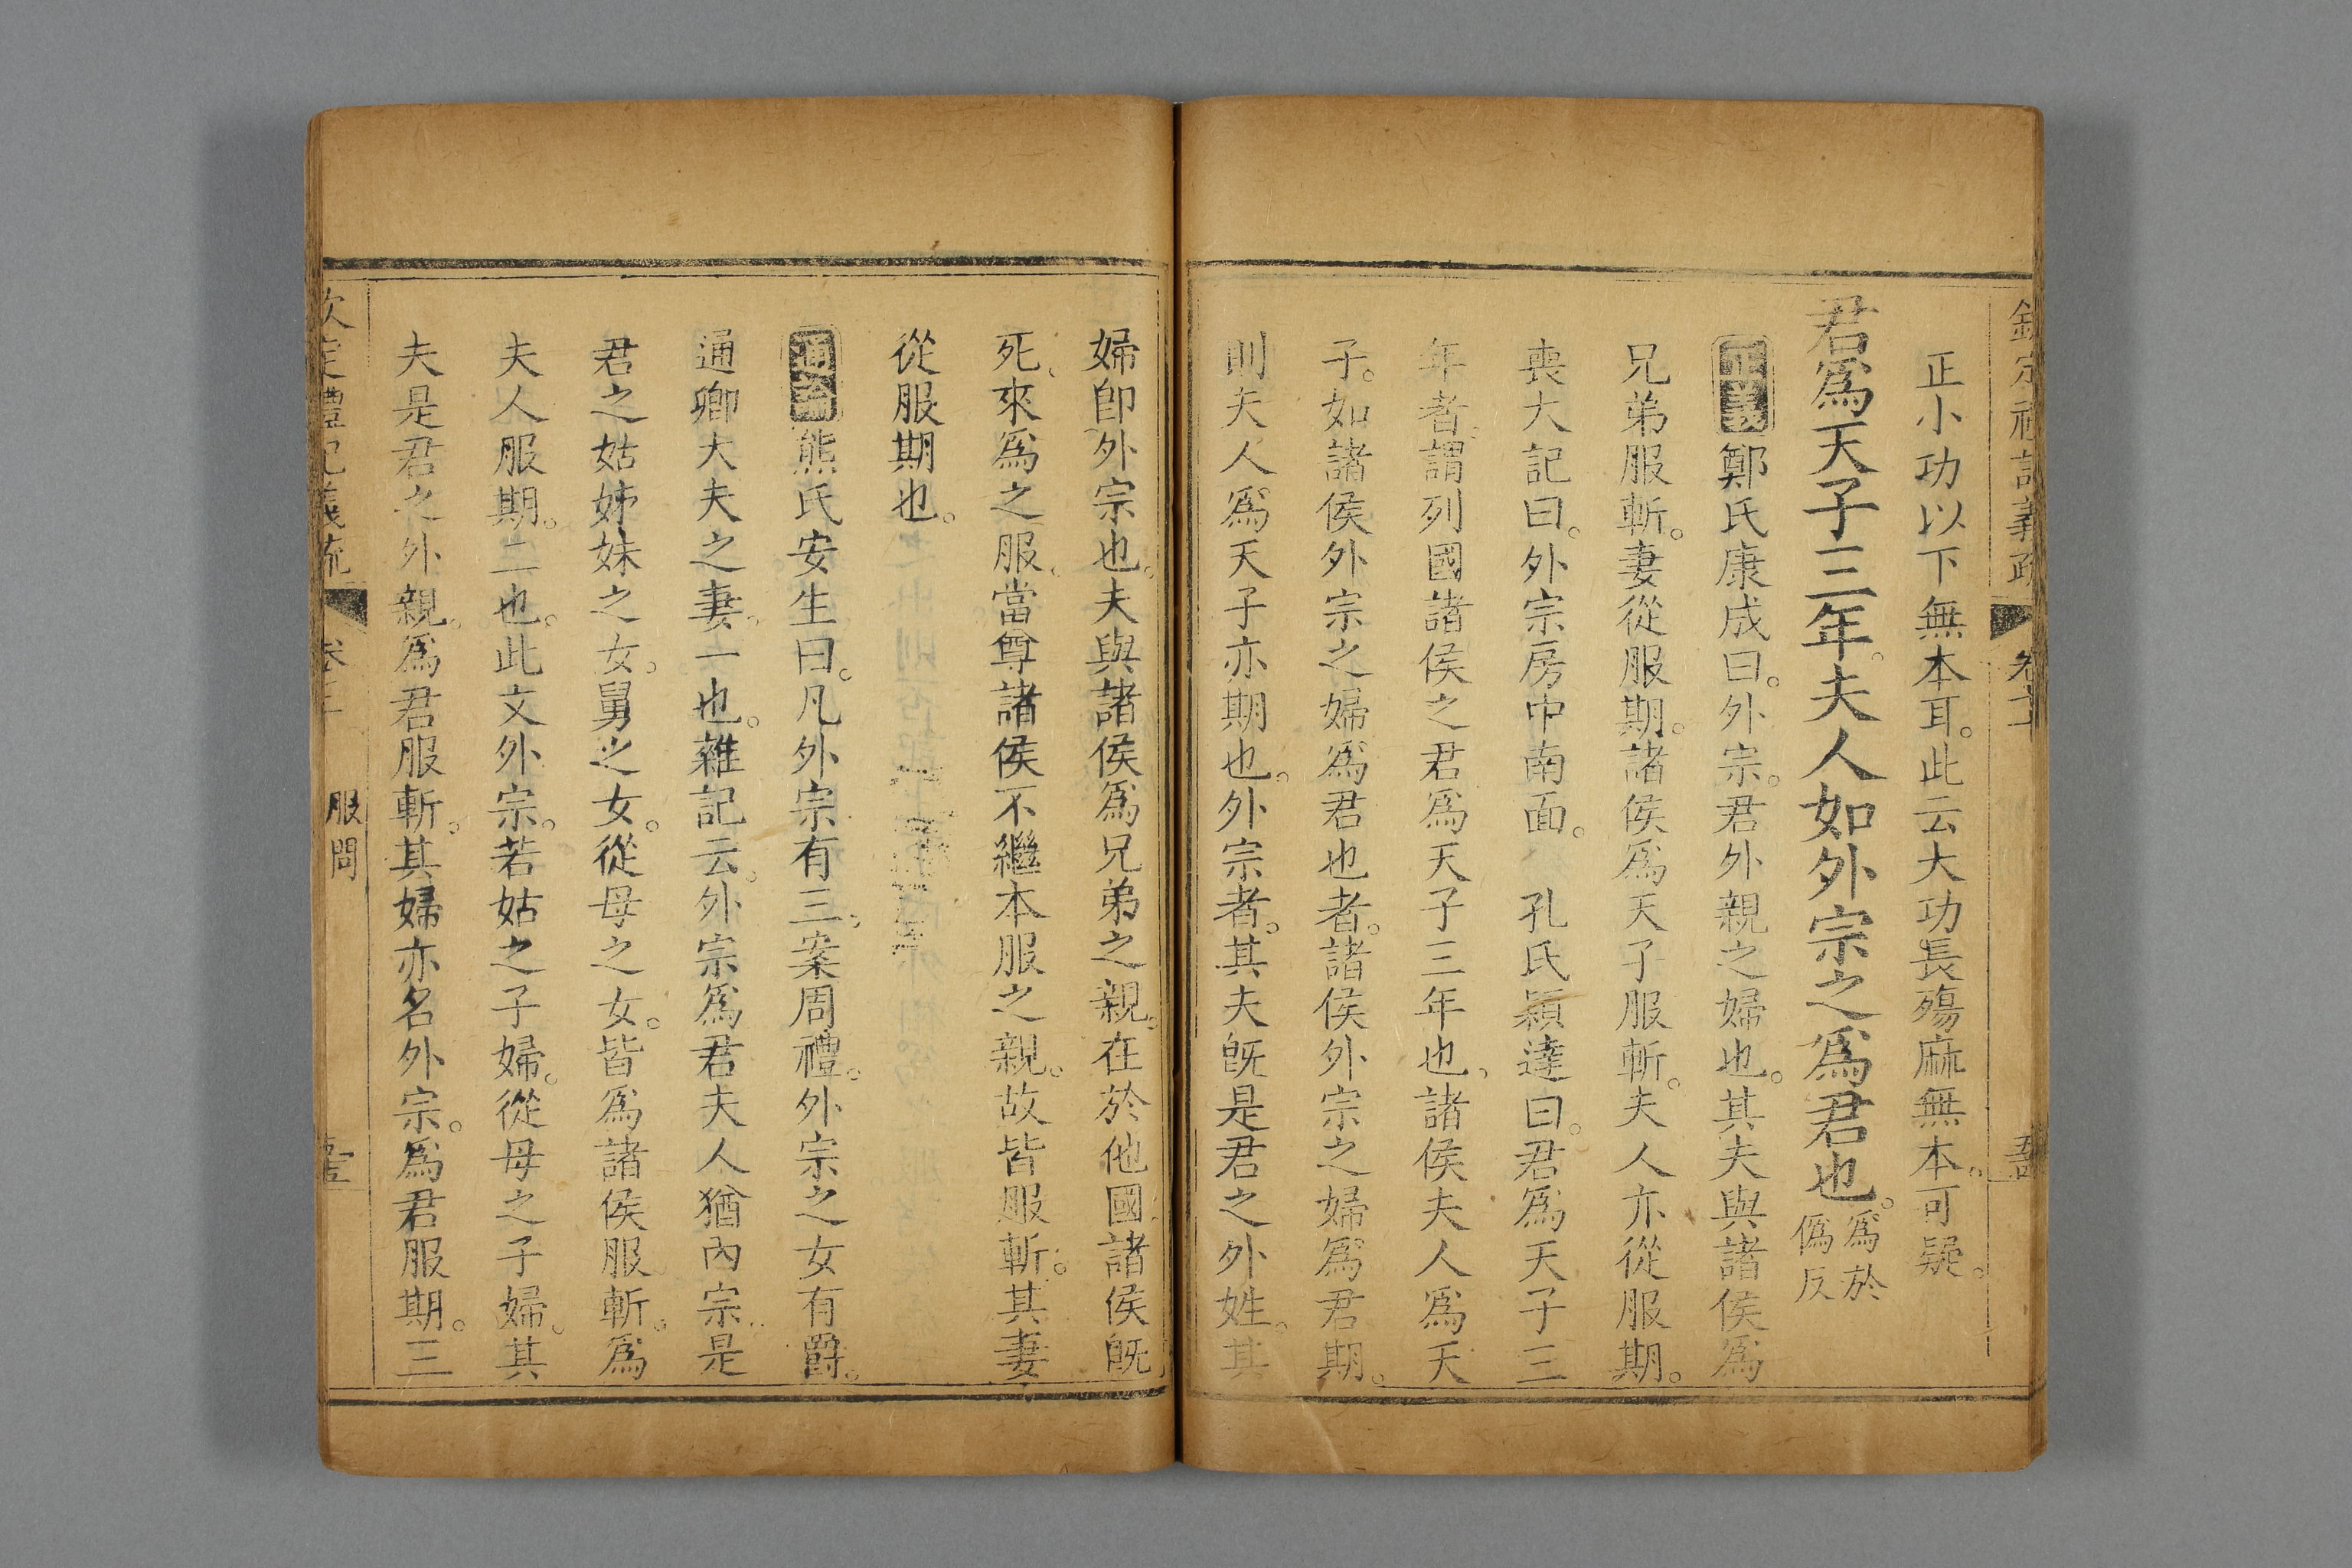 欽定禮記義疏
卷
正小功以下無本耳。此云大功長殤麻無本。可疑。
君爲天子三年。夫人如外宗之爲君也。爲於
僞反
正義鄭氏康成曰。外宗。君外親之婦也。其夫與諸侯爲
兄弟服斬。妻從服期。諸侯爲天子服斬。夫人亦從服期。
喪大記曰。外宗房中南面。 孔氏穎達曰。君爲天子三
年者。謂列國諸侯之君爲天子三年也、諸侯夫人爲天
子。如諸侯外宗之婦爲君也者。諸侯外宗之婦爲君期。
則夫人爲天子亦期也。外宗者。其夫既是君之外姓。其
婦卽外宗也。夫與諸侯爲兄弟之親。在於他國諸侯既
死、來爲之服、當尊諸侯不繼本服之親。故皆服斬。其妻
從服期也。
通論熊氏安生曰。凡外宗有三、案周禮。外宗之女有爵。
通卿大夫之妻。一也。雜記云。外宗爲君夫人猶內宗是
君之姑姊妹之女。舅之女。從母之女。皆爲諸侯服斬。爲
夫人服期。二也。此文外宗。若姑之子婦。從母之子婦。其
夫是君之外親。爲君服斬。其婦亦名外宗。爲君服期。三
欽定禮記義疏
卷
服問